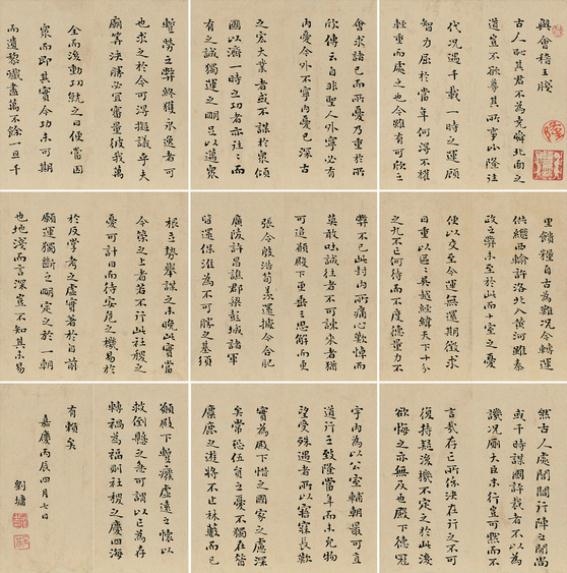 與會稽王牋
古人恥其君不為堯舜北面之
道豈不欲尊其所事比隆往
代況遇千載一時之運顧
智力屈於當年何得不權
輕重而處之也今雖有可欣之
會求諸己而所憂乃重於所
欣傳云自非聖人外寧必有
內憂今外不寧內憂已深古
之宏大業者或不謀於衆傾
國以濟一時之功者亦往〻而
有之誠獨運之明足以邁衆
暫勞之弊終獲永逸者可
也求之於今可得擬議乎夫
廟算決勝必宜審量彼我萬
全而後動功就之日便當因
衆而即其實今功未可期
而遺黎殲盡萬不餘一且千
里饋糧自古為難況今轉運
供繼西輸許洛北入黃河雖秦
政之弊未至於此而十室之憂
便以交至今運無還期徵求
日重以區〻吳越經緯天下十分
之九不亡何待而不度德量力不
弊不已此封內所痛心歎悼而
莫敢吐誠往者不可諫來者猶
可追願殿下更垂三思解而更
張令殷浩荀羨還據合肥
廣陵許昌譙郡梁彭城諸軍
皆還保淮為不可勝之基須
根立勢舉謀之未晚此實當
今策之上者若不行此社稷之
憂可計日而待安危之機易於
於反掌考之虛實著於目前
願運獨斷之明定之於一朝
也地淺而言深豈不知其未易
然古人處閭閻行陣之間尚
或干時謀國評裁者不以為
譏況廁大臣末行豈可默而不
言哉存亡所係決在行之不可
復持疑後機不定之於此後
欲悔之亦無及也殿下德冠
宇內為以公室輔朝最可直
道行之致隆當年而未允物
望受殊遇者所以寤寐長歎
實為殿下惜之國家之慮深
矣常恐伍員之憂不獨在昔
麋鹿之遊將不止林藪而已
願殿下暫廢虛遠之懷以
救倒懸之急可謂以亡為存
轉禍為福則社稷之慶四海
有賴矣
嘉慶丙辰四月七日
劉墉